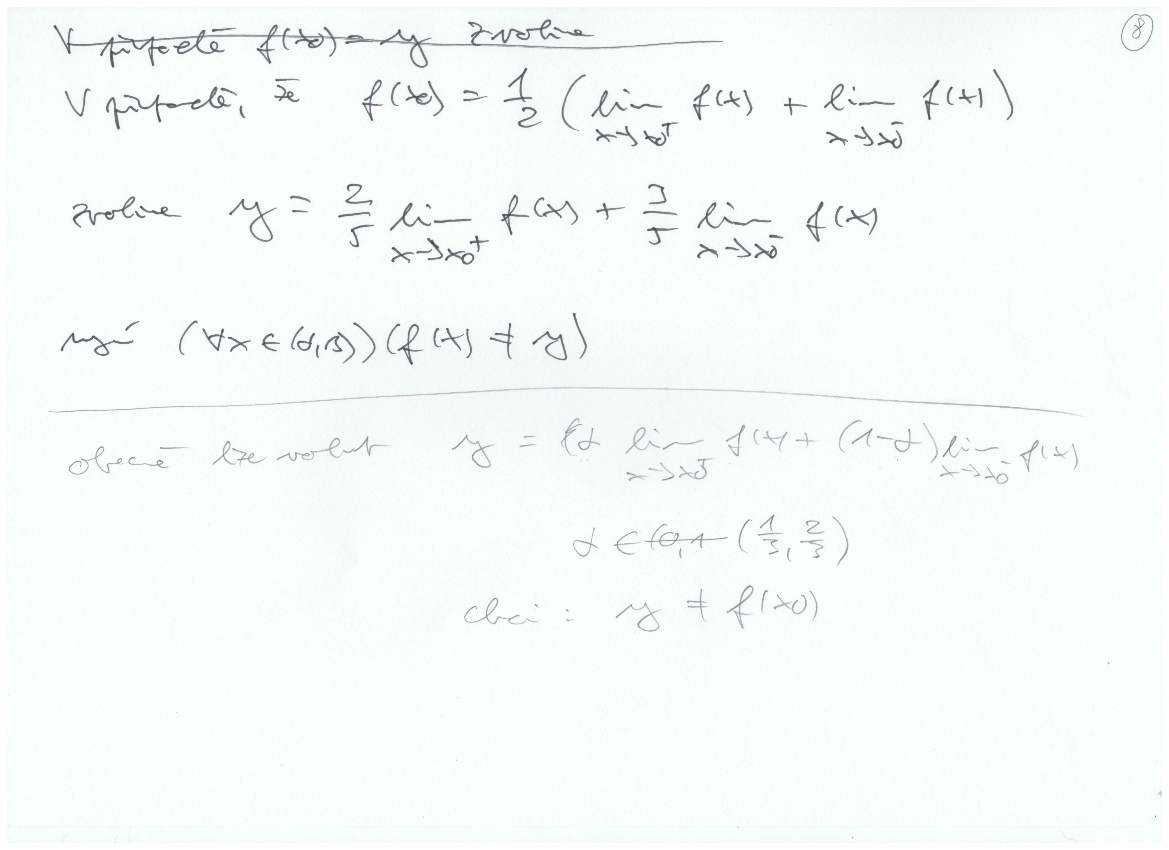 8
V případě f(x0) = y zvolíme
V případě, že f(x0) = 1/2 ( lim x→x0+ f(x) + lim x→x0- f(x) )
zvolíme y = 2/5 lim x→x0+ f(x) + 3/5 lim x→x0- f(x)
nyní (∀x ∈ (α,β)) (f(x) ≠ y)
obecně lze volit y = α lim x→x0+ f(x) + (1-α) lim x→x0- f(x)
α ∈ (0,1 (1/3, 2/3)
chci : y ≠ f(x0)